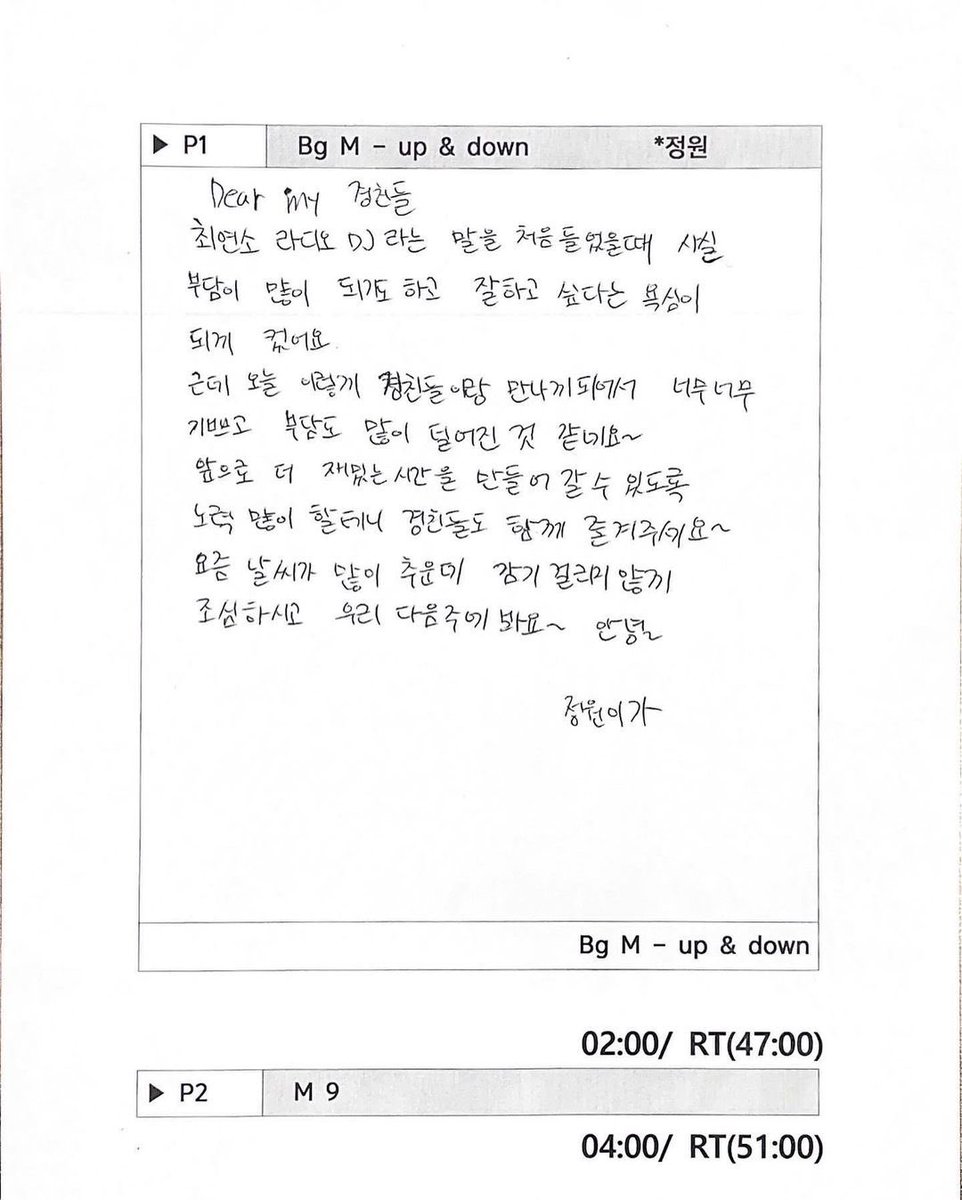 ▶ P1 Bg M - up & down *정원
Dear my 경친들
최연소 라디오 DJ 라는 말을 처음 들었을때 사실
부담이 많이 되기도 하고 잘하고 싶다는 욕심이
되게 컸어요
근데 오늘 이렇게 경친들이랑 만나게 되어서 너무너무
기쁘고 부담도 많이 덜어진 것 같네요~
앞으로 더 재밌는 시간을 만들어 갈 수 있도록
노력 많이 할테니 경친들도 함께 즐겨주세요~
요즘 날씨가 많이 추운데 감기 걸리지 않게
조심하시고 우리 다음주에 봐요~ 안녕
정원이가
Bg M - up & down
02:00/ RT(47:00)
▶ P2 M 9
04:00/ RT(51:00)